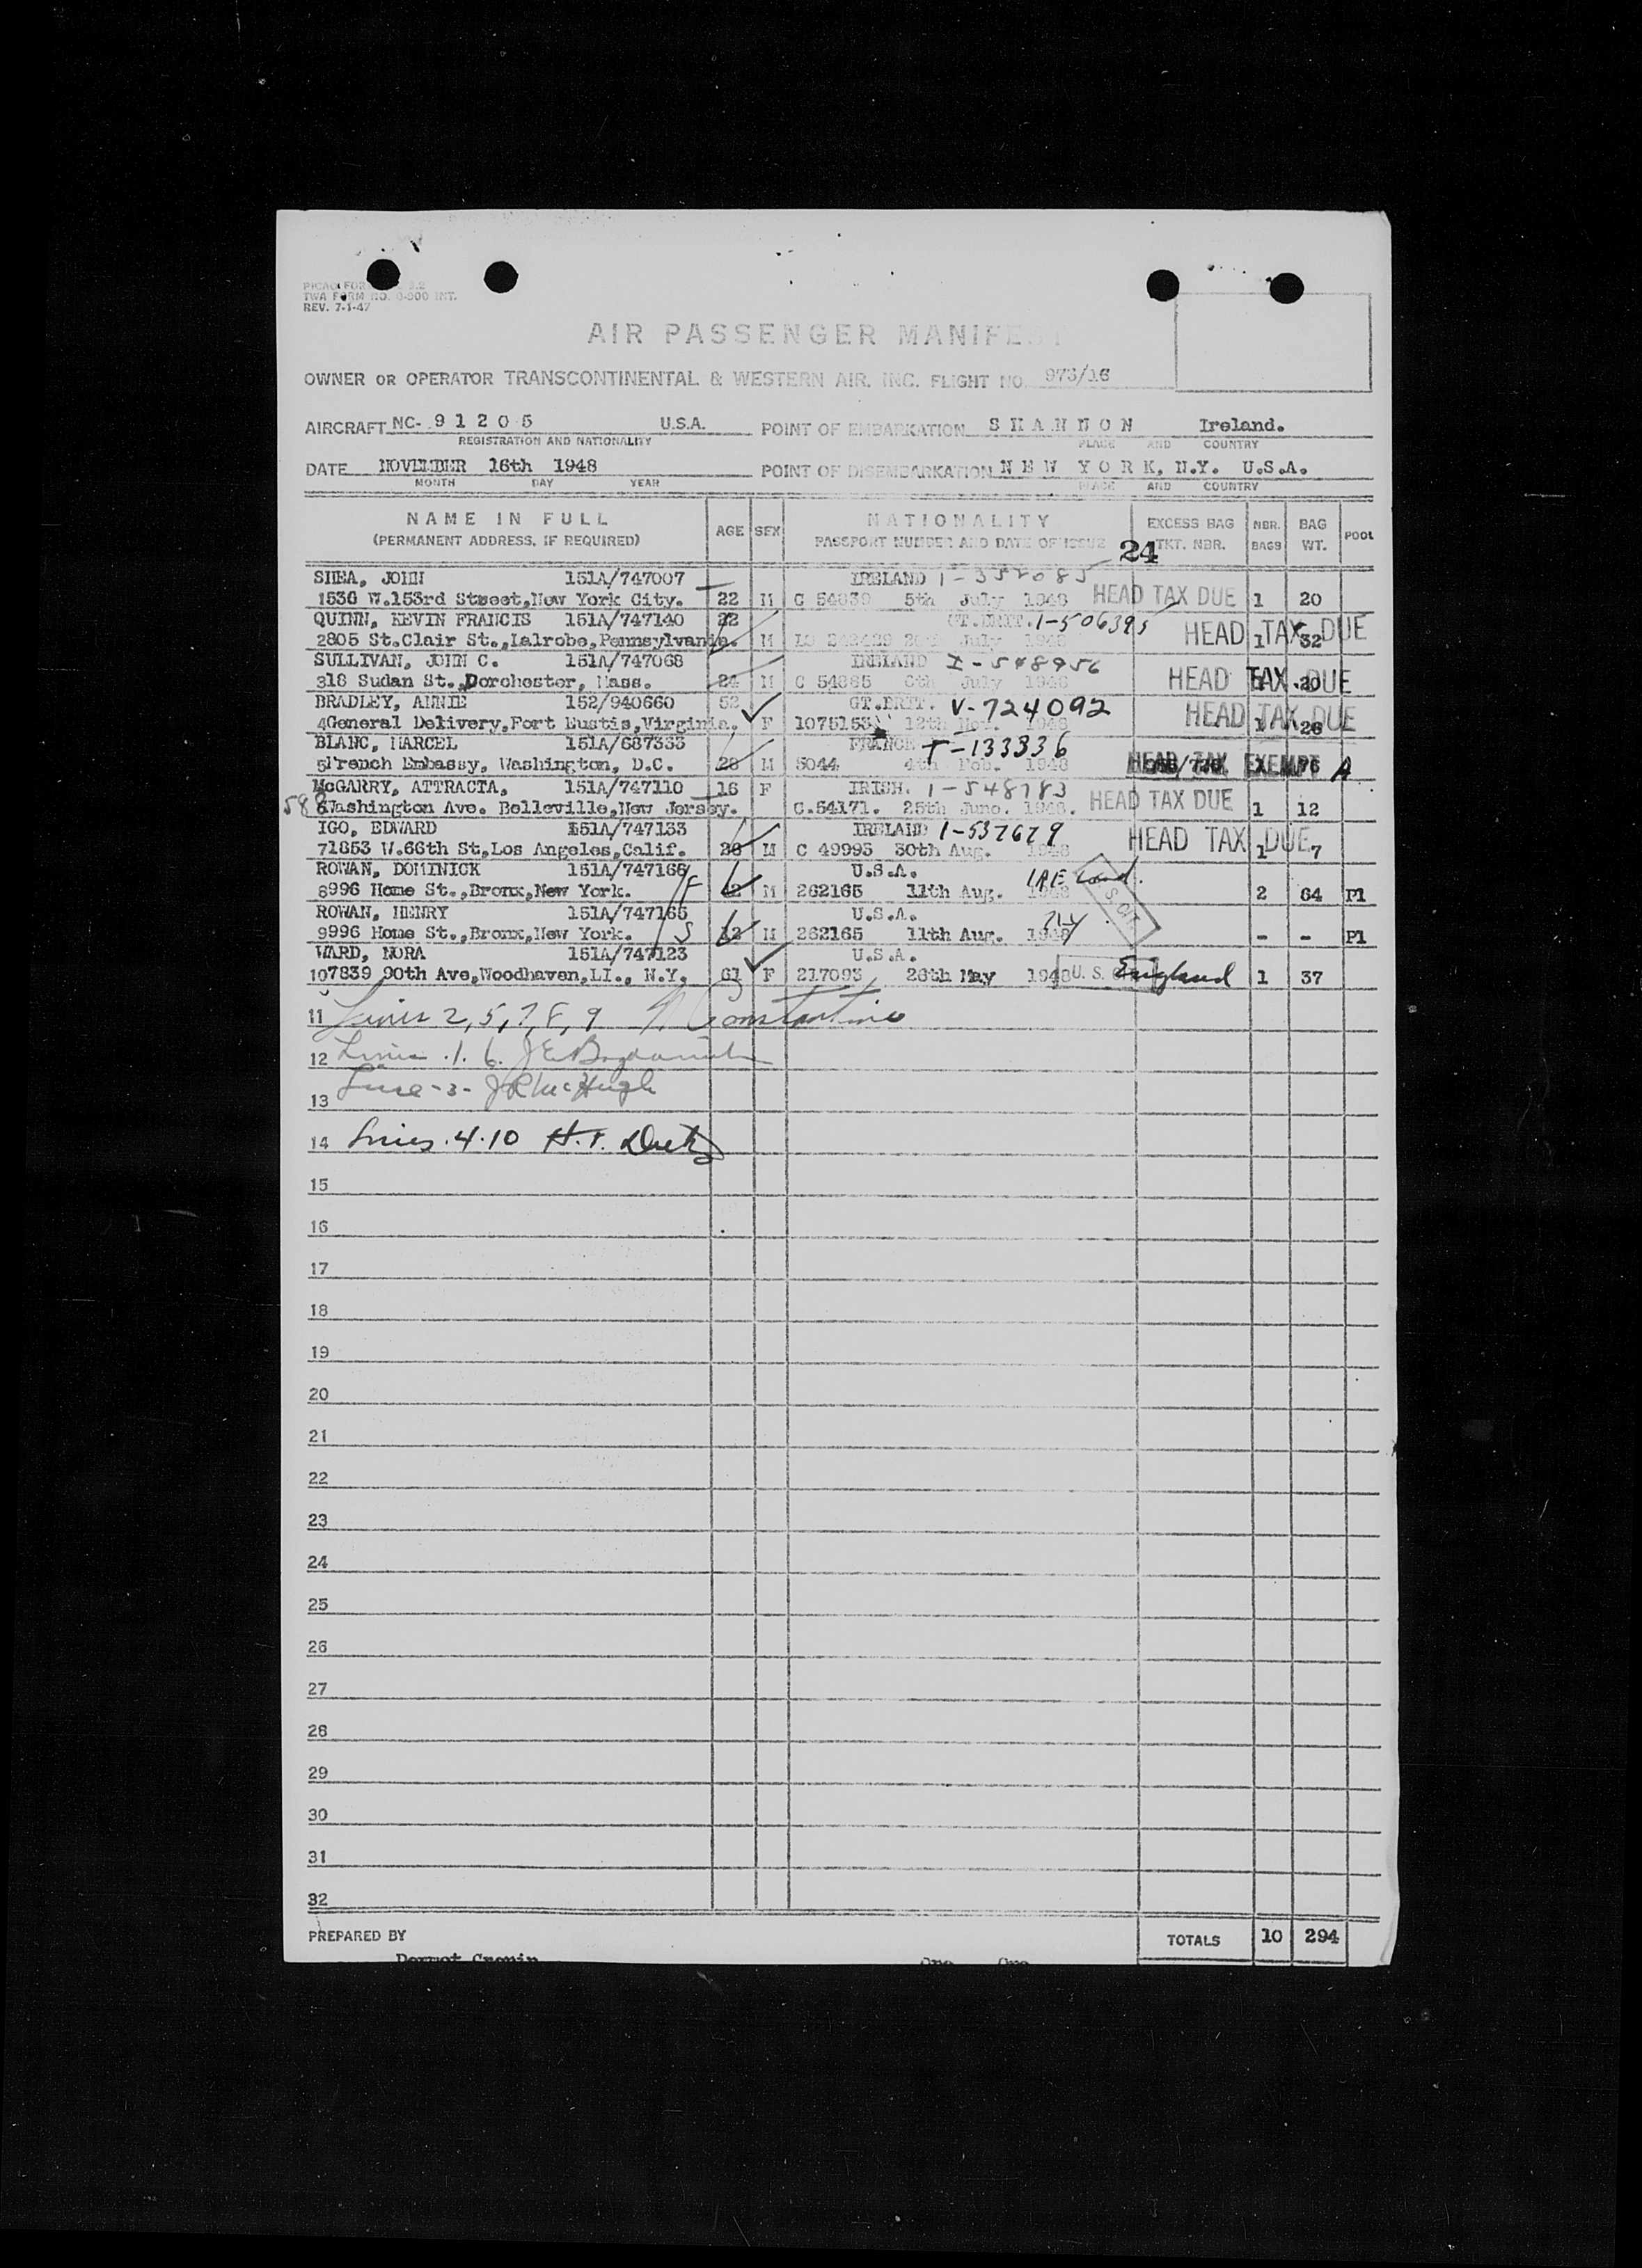 TWA FORM NO. 0-800 INT.
REV. 7-1-47
AIR PASSENGER MANIFEST
OWNER OR OPERATOR TRANSCONTINENTAL & WESTERN AIR, INC. FLIGHT NO. 973/16
AIRCRAFT NC- 9 1 2 0 5 U.S.A. POINT OF EMBARKATION S H A N N O N Ireland.
REGISTRATION AND NATIONALITY PLACE AND COUNTRY
DATE NOVEMBER 16th 1948 POINT OF DISEMBARKATION N E W Y O R K, N.Y. U.S.A.
MONTH DAY YEAR PLACE AND COUNTRY
NAME IN FULL AGE SEX NATIONALITY EXCESS BAG NBR. BAG POOL
(PERMANENT ADDRESS, IF REQUIRED) PASSPORT NUMBER AND DATE OF ISSUE 24 TKT. NBR. BAGS WT.
SHEA, JOHN 151A/747007 IRELAND 1-352085
1536 W.153rd Street,New York City. 22 M C 54839 5th July 1948 HEAD TAX DUE 1 20
QUINN, KEVIN FRANCIS 151A/747140 22 GT.BRIT. 1-506395
2805 St.Clair St.,Lalrobe,Pennsylvania. M July 1948 HEAD TAX DUE 1 32
SULLIVAN, JOHN C. 151A/747068 IRELAND I-548956
318 Sudan St.,Dorchester, Mass. 24 M C 54885 6th July 1948 HEAD TAX DUE 20
BRADLEY, ANNIE 152/940660 52 GT.BRIT. V-724092
4General Delivery,Fort Eustis,Virginia. F 1075153 12th Nov. 1948 HEAD TAX DUE 1 26
BLANC, MARCEL 151A/687333 FRANCE T-133336
5French Embassy, Washington, D.C. 28 M 5044 4th Feb. 1948 HEAD TAX EXEMPT 76 A
McGARRY, ATTRACTA, 151A/747110 16 F IRISH. 1-548783
588 Washington Ave. Belleville,New Jersey. C.54171. 25th June. 1948. HEAD TAX DUE 1 12
IGO, EDWARD 151A/747133 IRELAND 1-537679
71853 W.66th St,Los Angeles,Calif. 26 M C 49993 30th Aug. 1948 HEAD TAX DUE 1 7
ROWAN, DOMINICK 151A/747166 U.S.A. IRELAND.
8996 Home St.,Bronx,New York. F M 262165 11th Aug. 1948 U.S. CIT. 2 64 P1
ROWAN, HENRY 151A/747165 U.S.A.
9996 Home St.,Bronx,New York. S 12 M 262165 11th Aug. 1948 NY - - P1
WARD, NORA 151A/747123 U.S.A.
107839 90th Ave,Woodhaven,LI., N.Y. 61 F 217093 26th May 1948 U. S. England 1 37
11 Lines 2,5,7,8,9 N Constantino
12 Lines .1. 6.
13 Line -3- J R McHugh
14 Lines .4.10 H.F. Dietz
15
16
17
18
19
20
21
22
23
24
25
26
27
28
29
30
31
32
PREPARED BY TOTALS 10 294
Dermot Cronin One One